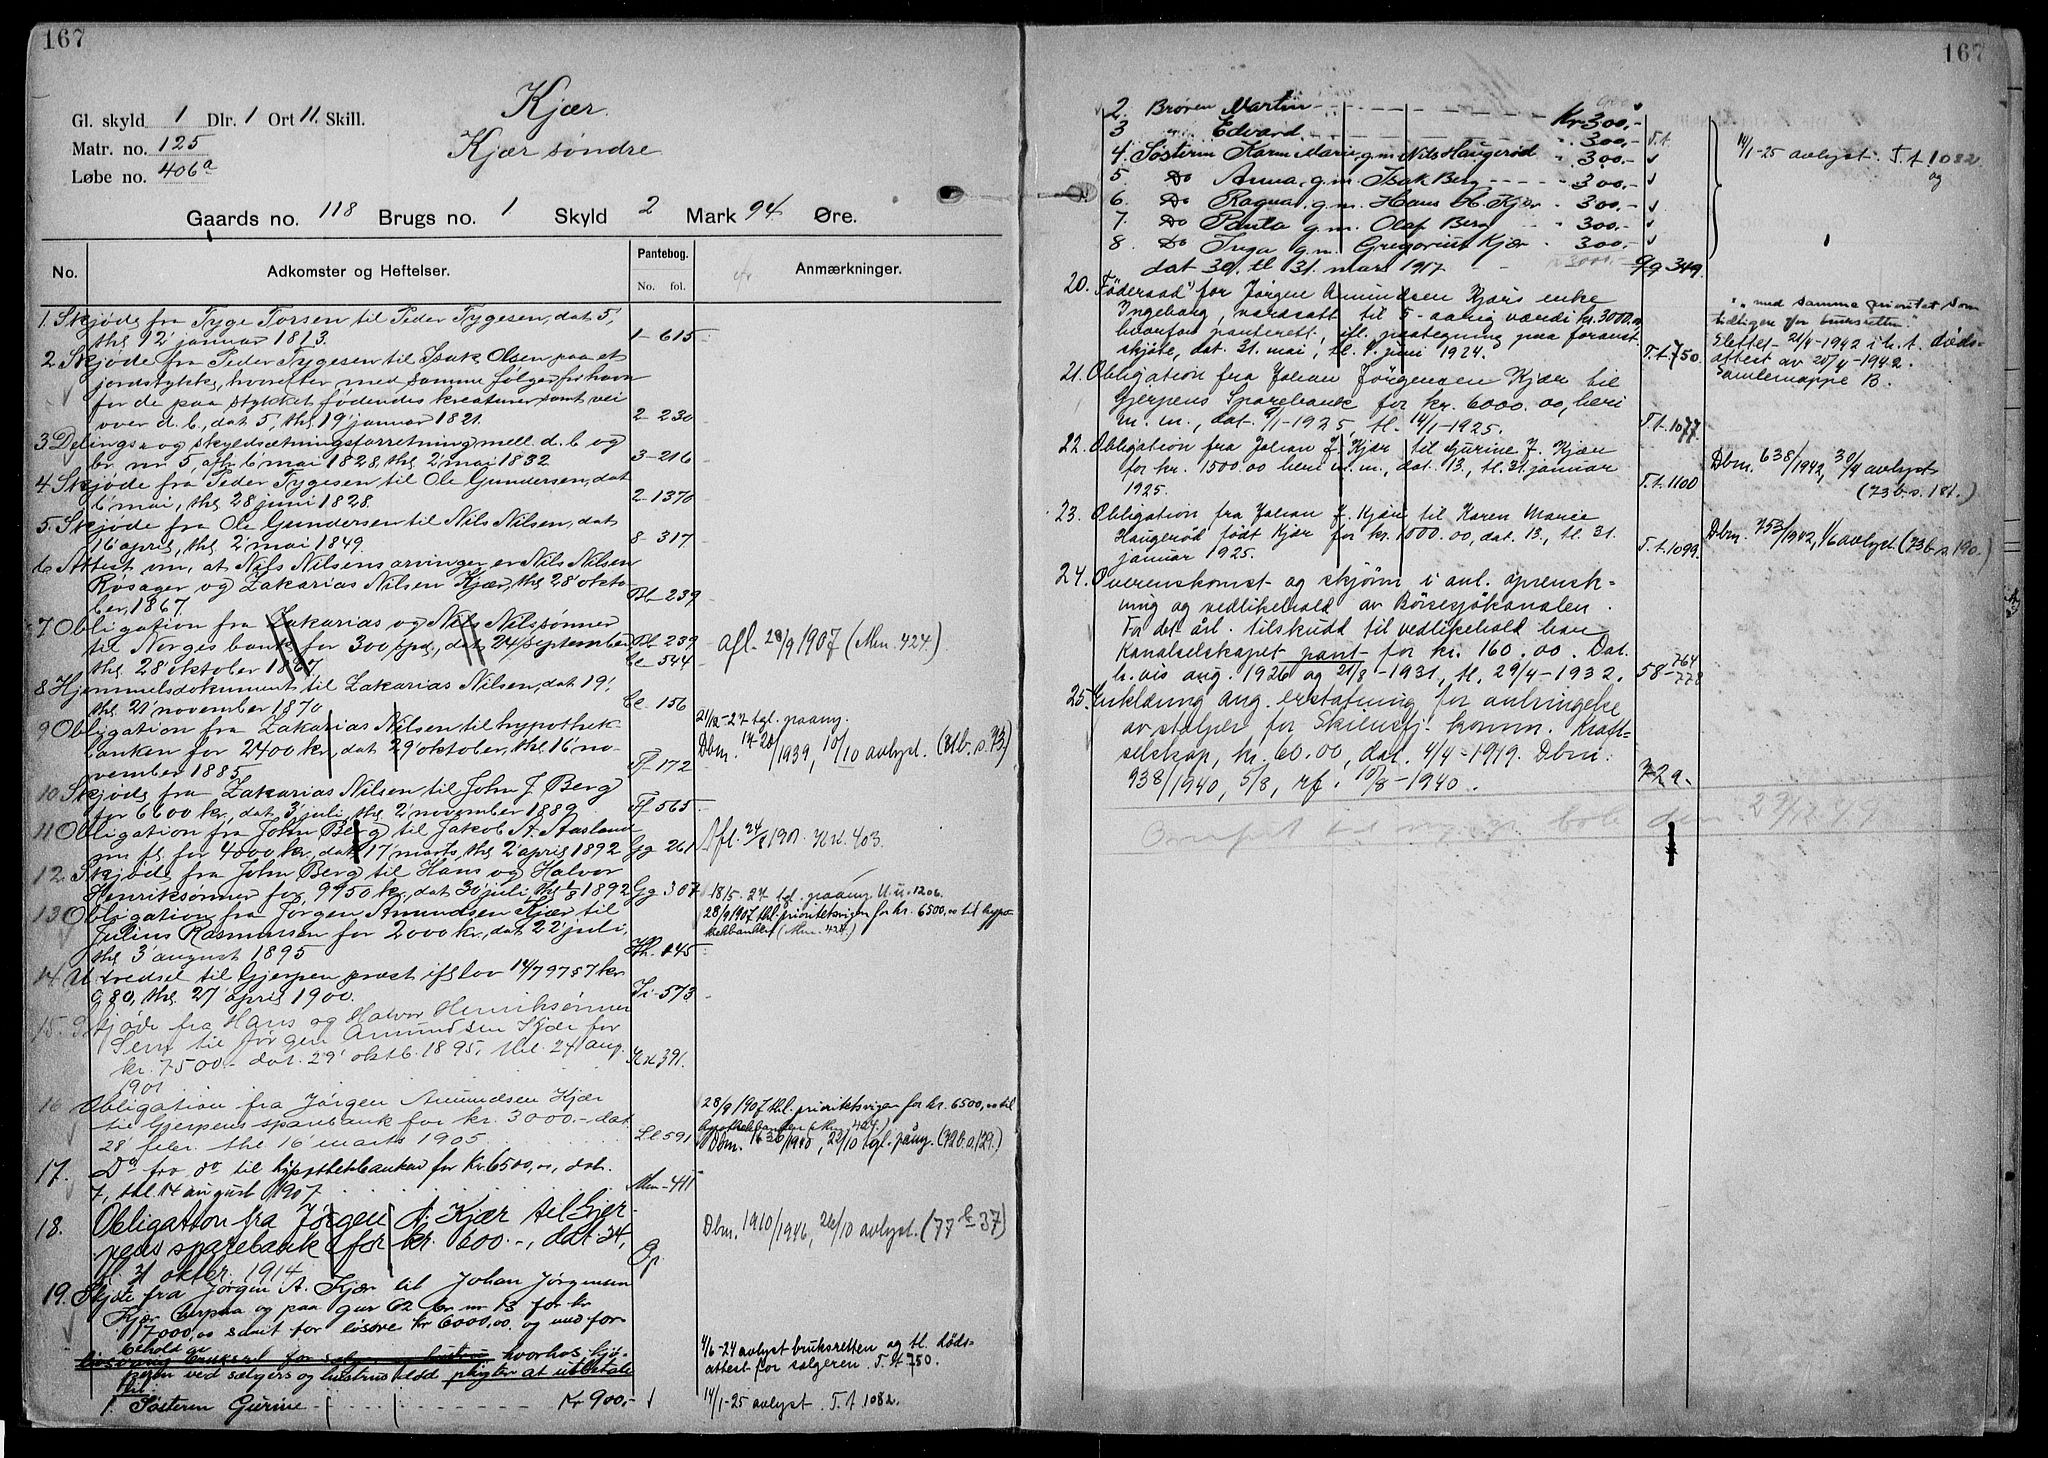 167
Kjær.
Gl. skyld 1 Dlr. 1 Ort 11 Skill.
Kjær søndre
Matr. no. 125
Løbe no. 406a
Gaards no. 118 Brugs no. 1 Skyld 2 Mark 94 Øre.
No. Adkomster og Heftelser. Pantebog. Anmærkninger.
No. fol.
1. Skjøde fra Tyge Torsen til Peder Tygesen, dat 5',
thl 12' januar 1813. 1-615
2 Skjøde fra Peder Tygesen til Isak Olsen paa et
jordstykke, hvorefter med samme følger fri havn
for de paa stykket fødendes kreaturer samt vei
over d. b., dat 5', thl 19' januar 1821. 2-230
3 Delings- og skyldsætningsforretning mell. d. b og
br. nr. 5, afh. 6' mai 1828, thl 2' mai 1832 3-216
4 Skjøde fra Peder Tygesen til Ole Gundersen, dat
6' mai, thl 28' juni 1828. 2-1370
5. Skjøde fra Ole Gundersen til Nils Nilsen, dat
16' april, thl 2' mai 1849. 8-317
6 Attest om, at Nils Nilsens arvinger er Nils Nilsen
Røsager og Zakarias Nilsen Kjær, thl 28' okto-
ber, 1867. Bb-239
7 Obligation fra Zakarias og Nils Nilssønner
til Norges bank for 300 spd, dat 24' september Bb 239
thl 28' oktober 1867 Cc-544 afl. 28/9 1907 (Mm. 424.)
8 Hjemmelsdokument til Zakarias Nilsen, dat 19',
thl 21' november 1870 Cc. 156
9 Obligation fra Zakarias Nilsen til hypothek-
banken for 2400 kr, dat 29' oktober, thl 16' no-
vember 1885. Ff-172
21/12-27 tgl. paaang.
Dbm. 1420/1939, 10/10 avlyst. (71b. s. 73.)
10 Skjøde fra Zakarias Nilsen til John J. Berg
for 6600 kr, dat 3' juli, thl 2' november 1889 Ff-565
11 Obligation fra John Berg til Jakob A. Aasland
for 4000 kr, dat 17' marts, thl 2' april 1892 Gg 261 Afl. 24/8 1901 Kk. 403.
12. Skjøde fra John Berg til Hans og Halvor
Henriksønner for 9950 kr, dat 30' juli, thl 1892 Gg 307 18/5-27 tgl. paaang. U.u. 1206.
13 Obligation fra Jørgen Amundsen Kjær til
Julius Rasmussen for 2000 kr, dat 22' juli,
thl 3' august 1895 Hh. 145
28/9 1907 thl. prioritetsvigen for kr. 6500,00 til hypo-
thekbanken (Mm. 424.)
14. Utredsel til Gjerpen præst ifl lov 14/7 97 57 kr
980, thl 27' april 1900. Ii-573
15. Skjøde fra Hans og Halvor Henriksønner
Sem til Jørgen Amundsen Kjær for
kr. 7500.- dat. 29' oktb. 1895, thl. 24' aug.
1901 Kk 391.
16 Obligation fra Jørgen Amundsen Kjær
til Gjerpens sparebank for kr. 3000.- dat
28' febr. thl 16' marts 1905. Ll 591
28/9 1907 thl. prioritetsvigen for kr. 6500,00 til
hypothekbanken (Mm. 424.)
Dbm. 1630/1940, 22/10 tgl. pång. (72b. s. 129.)
17. Do fra do til hypothekbanken for Kr 6500,00, dat.
7, thl. 14 august 1907. Mm-411
18. Obligation fra Jørgen A. Kjær til Gjer-
pens sparebank for kr. 600.-, dat. 24,
tl. 31 oktbr. 1914 Pp
Dbm. 1910/1946, 26/10 avlyst. (77 b 37)
19. Skjøte fra Jørgen A. Kjær til Johan Jørgensen
Kjær herpaa og paa gnr 62 br. nr 13 for kr
17000,00 samt for løsøre kr 6000,00. og med for-
behold av
hvorhos kjø-
peren ved sælgers og hustrus død pligter at utbetale
til:
1. Søsteren Gurine Kr 900,-
4/6-24 avlyst bruksretten og tl. døds-
attest for sælgeren. T. t 750.
14/1-25 avlyst. T. t 1082.
167
2. Broren Martin Kr 300.-
3 Edvard 300,- T. t.
4. Søsteren Karen Marie, g. m. Nils Haugerød 300,-
5. Do Anna, g. m. Isak Berg 300,-
6. Do Ragna, g. m. Hans H. Kjær 300,-
7 Do Paula g. m. Olaf Berg 300,-
8. Do Inga g. m. Gregorius Kjær 300,-
dat 30. tl. 31. mars 1917 Qq 349.
14/1-25 avlyst. T. t 1082
og
20. Føderaad for Jørgen Amundsen Kjærs enke
Ingeborg, værdsatt til 5-aarig værdi kr. 3000.00
hvorfor panterett, ifl. paategning paa foranst.
skjøte, dat. 31. mai, tl. 4. juni 1924. T. t. 750
"med samme prioritet som
tidligere for bruksretten."
Slettet 21/4-1942 i h. t. døds-
attest av 20/4-1942.
Samlemappe B.
21. Obligation fra Johan Jørgensen Kjær til
Gjerpens Sparebank for kr. 6000.00, heri
m. m., dat. 9/1-1925, tl. 14/1-1925. T. t. 1077
22. Obligation fra Johan J. Kjær til Gurine J. Kjær
for kr. 1500.00 heri m. m., dat. 13., tl. 31. januar
1925. T. t. 1100
Dbm. 638/1942, 30/4 avlyst
(73 b s. 181.)
23. Obligation fra Johan J. Kjær til Karen Marie
Haugerød født Kjær for kr. 1000.00, dat. 13., tl. 31.
januar 1925. T. t. 1099.
Dbm. 753/1942, 1/6 avlyst (73 b s 190.)
24. Overenskomst og skjønn i anl. oprensk-
ning og vedlikehold av Børsesjøkanalen.
For det årl. tilskudd til vedlikehold har
Kanalselskapet pant for kr. 160.00. Dat.
h.vis aug. 1926 og 21/8-1931, tl. 29/4-1932. 58-764
778
25. Erklæring ang. erstatning for anbringelse
av stolper for Skiensfj. komm. Kraft-
selskap, kr. 60.00, dat. 4/4-1919. Dbm.
938/1940, 5/8, rf. 10/8-1940. 72 a-
Overført til ny